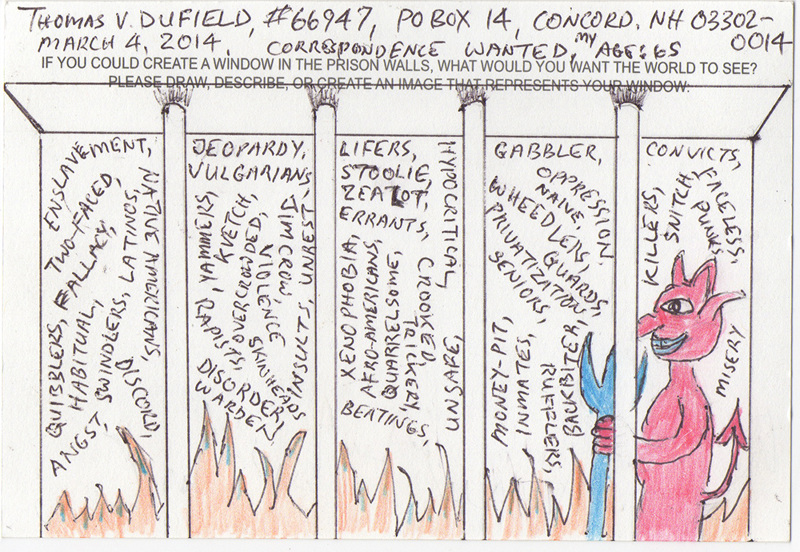 THOMAS V. DUFIELD, #66947, PO BOX 14, CONCORD, NH 03302-0014
MARCH 4, 2014, CORRESPONDENCE WANTED, MY AGE: 65
IF YOU COULD CREATE A WINDOW IN THE PRISON WALLS, WHAT WOULD YOU WANT THE WORLD TO SEE?
PLEASE DRAW, DESCRIBE, OR CREATE AN IMAGE THAT REPRESENTS YOUR WINDOW:
ENSLAVEMENT,
TWO-FACED,
QUIBBLERS, FALLACY,
HABITUAL,
ANGST, SWINDLERS, LATINOS,
NATIVE AMERICANS,
DISCORD,
JEOPARDY,
VULGARIANS,
RAPISTS, YAMMERS,
KVETCH,
OVERCROWDED,
VIOLENCE
SKINHEADS
JIM CROW,
INSULTS, UNREST
DISORDER,
WARDEN,
LIFERS,
STOOLIE,
ZEALOT,
ERRANTS,
XENOPHOBIA,
AFRO-AMERICANS,
QUARRELSOME,
TRICKERY,
CROOKED
HYPOCRITICAL,
UNSAFE,
BEATINGS,
GABBLER,
OPPRESSION
NAIVE,
WHEEDLERS,
GUARDS,
PRIVATIZATION
SENIORS,
MONEY-PIT,
INMATES,
BACKBITER,
RUFFLERS,
CONVICTS,
FACELESS,
PUNK,
SNITCH
KILLERS,
MISERY